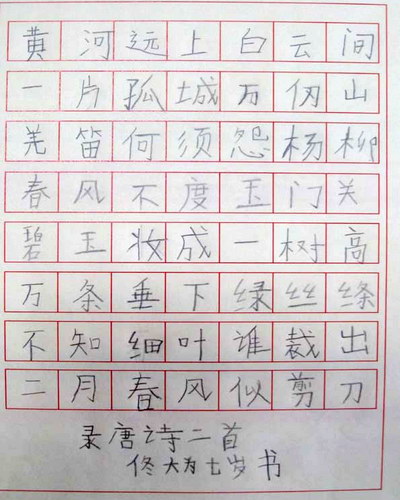 黄河远上白云间
一片孤城万仞山
羌笛何须怨杨柳
春风不度玉门关
碧玉妆成一树高
万条垂下绿丝绦
不知细叶谁裁出
二月春风似剪刀
录唐诗二首
佟大为七岁书